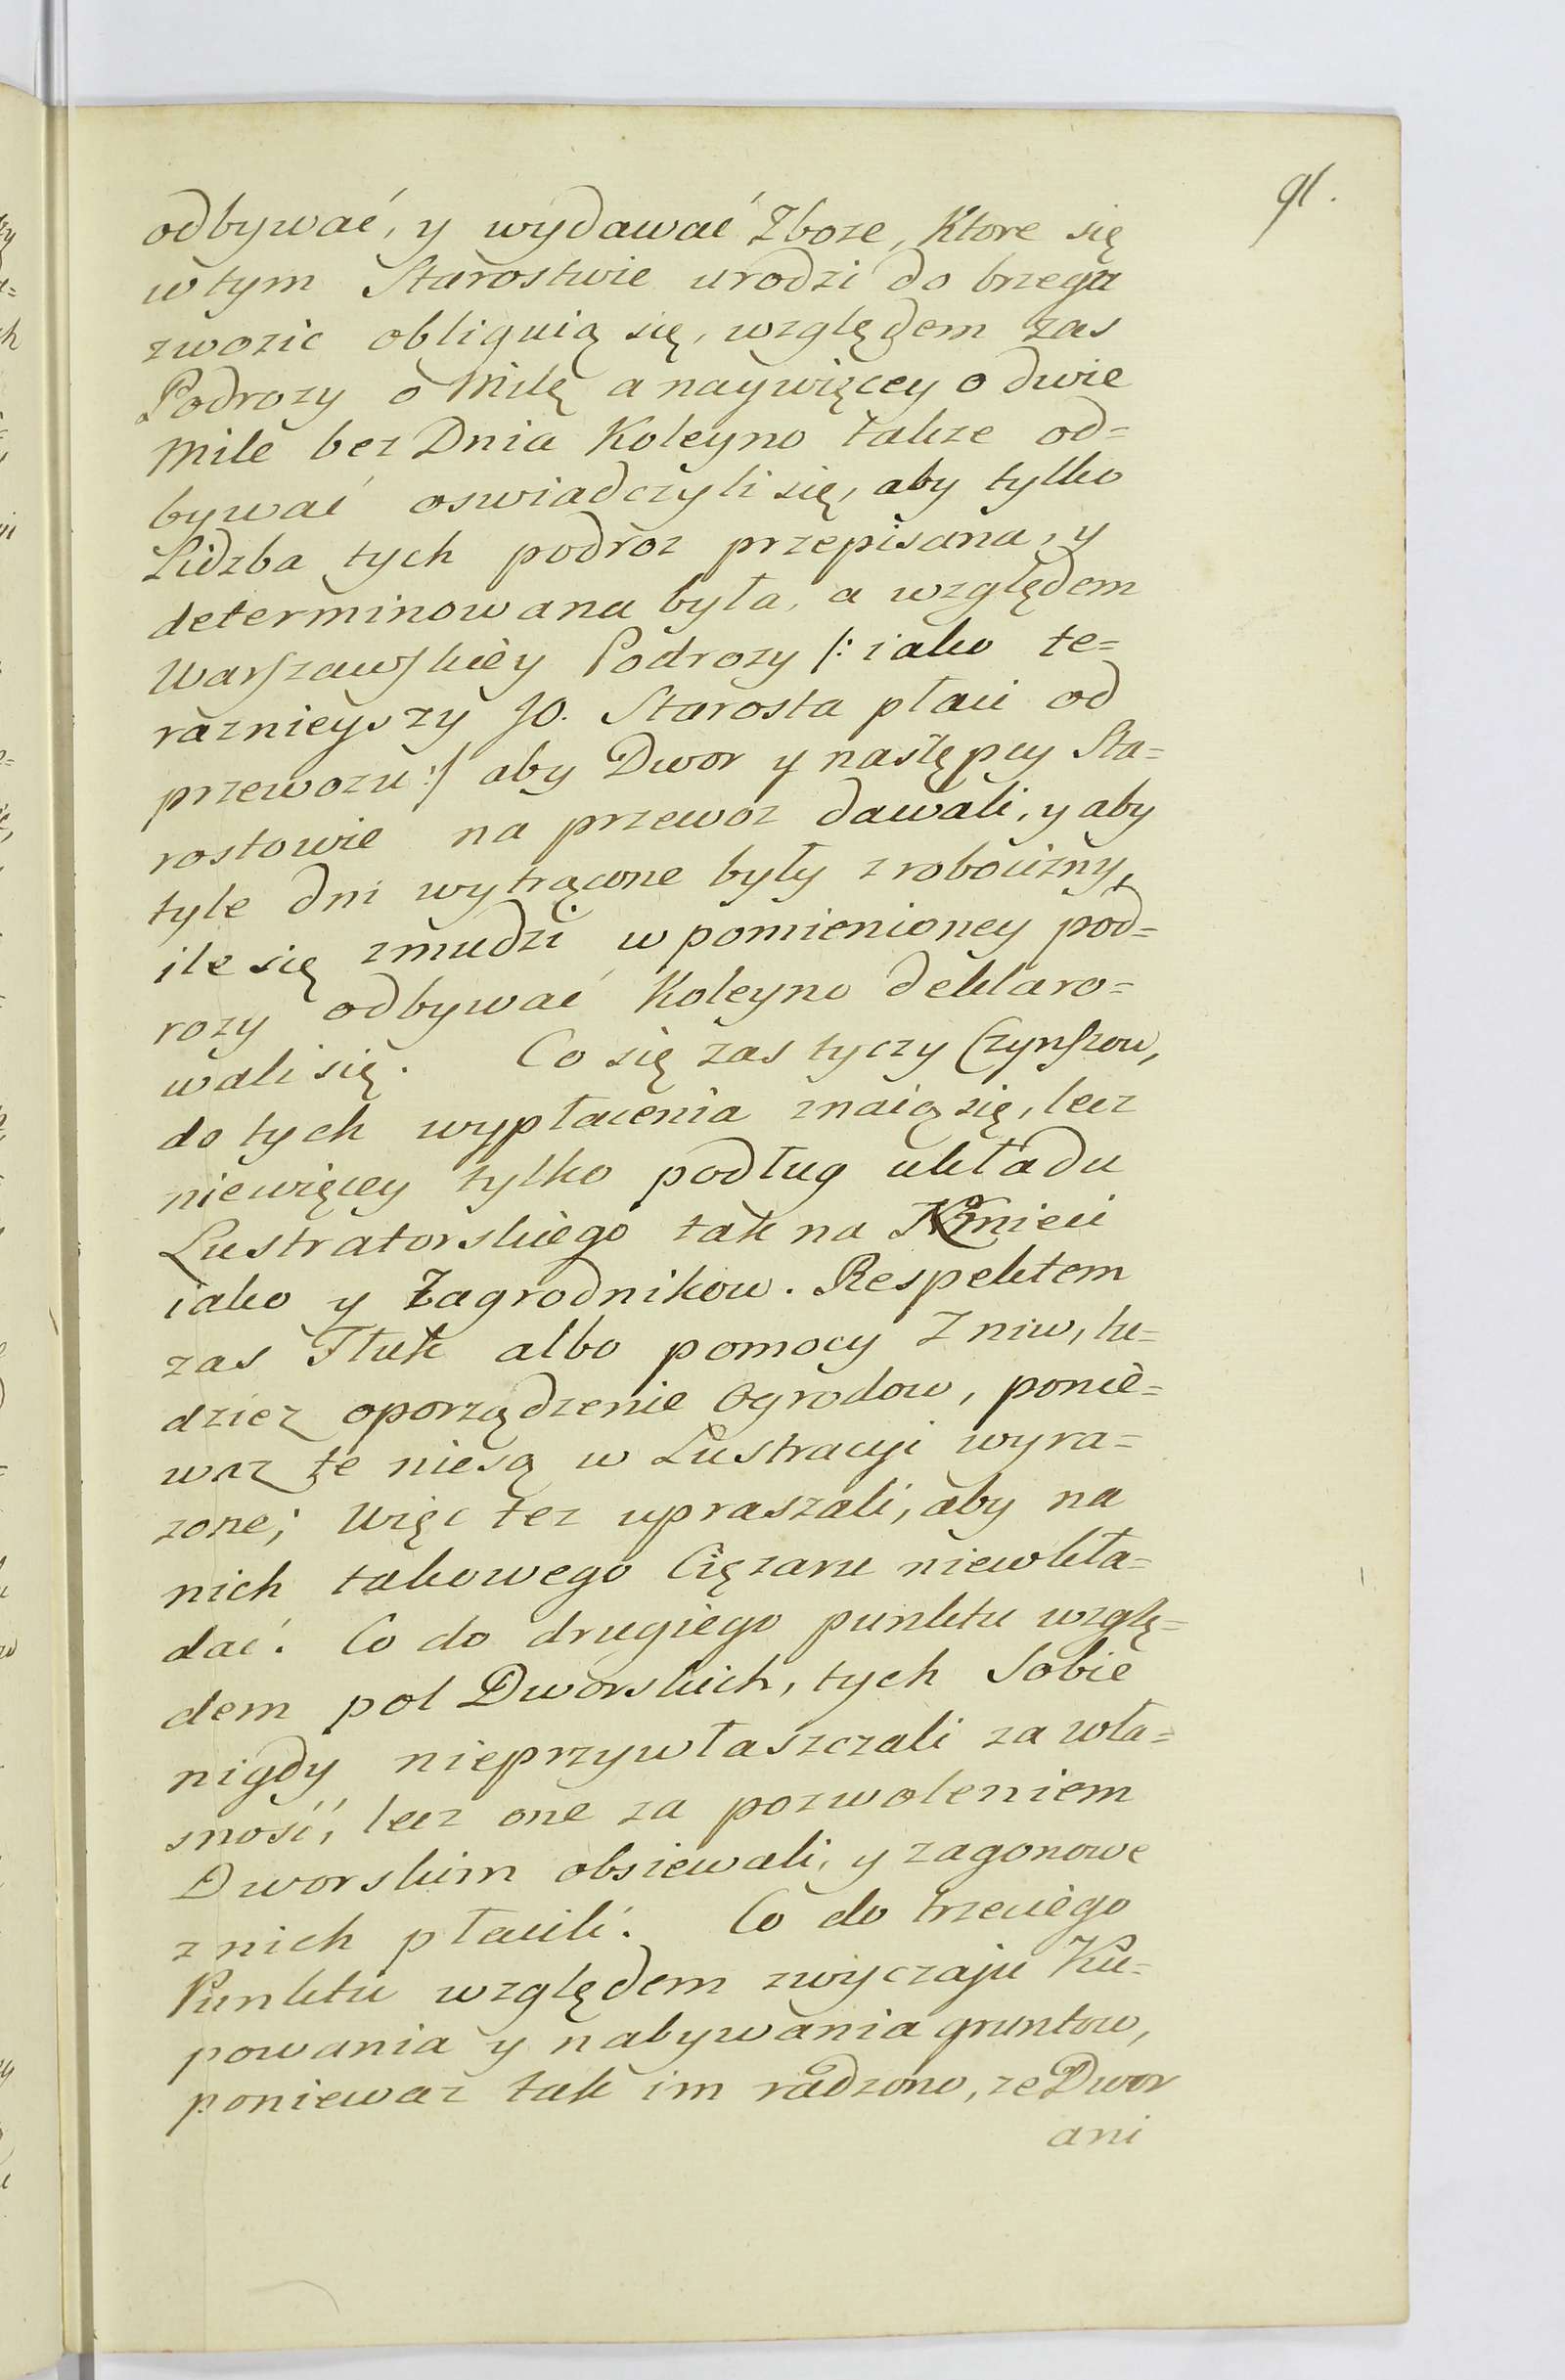 91.
odbywać, y wydawać Zboze, Ktore się
w tym Starostwie urodzi do brzega
zwozic obliguią się, względem zas
Podrozy o Milę a naywięcey o dwie
Mile bez Dnia Koleyno takze od=
bywać oswiadczyli się, aby tylko
Lidzba tych podroz przepisana, y
determinowana była, a względem
Warszawskiey Podrozy /: iako te=
raznieyszy JO. Starosta płaci od
przewozu :/ aby Dwor y następcy Sta=
rostowie na przewoz dawali, y aby
tyle dni wytrącone były z robocizny,
ile się zmudzi w pomienioney pod=
rozy odbywać Koleyno deklaro=
wali się. Co się zas tyczy Czynszow,
do tych wypłacenia znaią się, lecz
niewięcey tylko podług układu
Lustratorskiego tak na Kmieci
iako y Zagrodnikow. Respektem
zas Tłuk albo pomocy Zniw, tu=
dziez oporządzenie Ogrodow, ponie=
waz te niesą w Lustracyi wyra=
zone; Więc tez upraszali, aby na
nich takowego Cięzaru niewkła=
dać. Co do drugiego punktu wzglę=
dem pol Dworskich, tych Sobie
nigdy nieprzywłaszczali za wła=
sność, lecz one za pozwoleniem
Dworskim obsiewali, y zagonowe
z nich płacili. Co do trzeciego
Punktu względem zwyczaju Ku=
powania y nabywania gruntow,
poniewaz tak im radzono, ze Dwor
ani